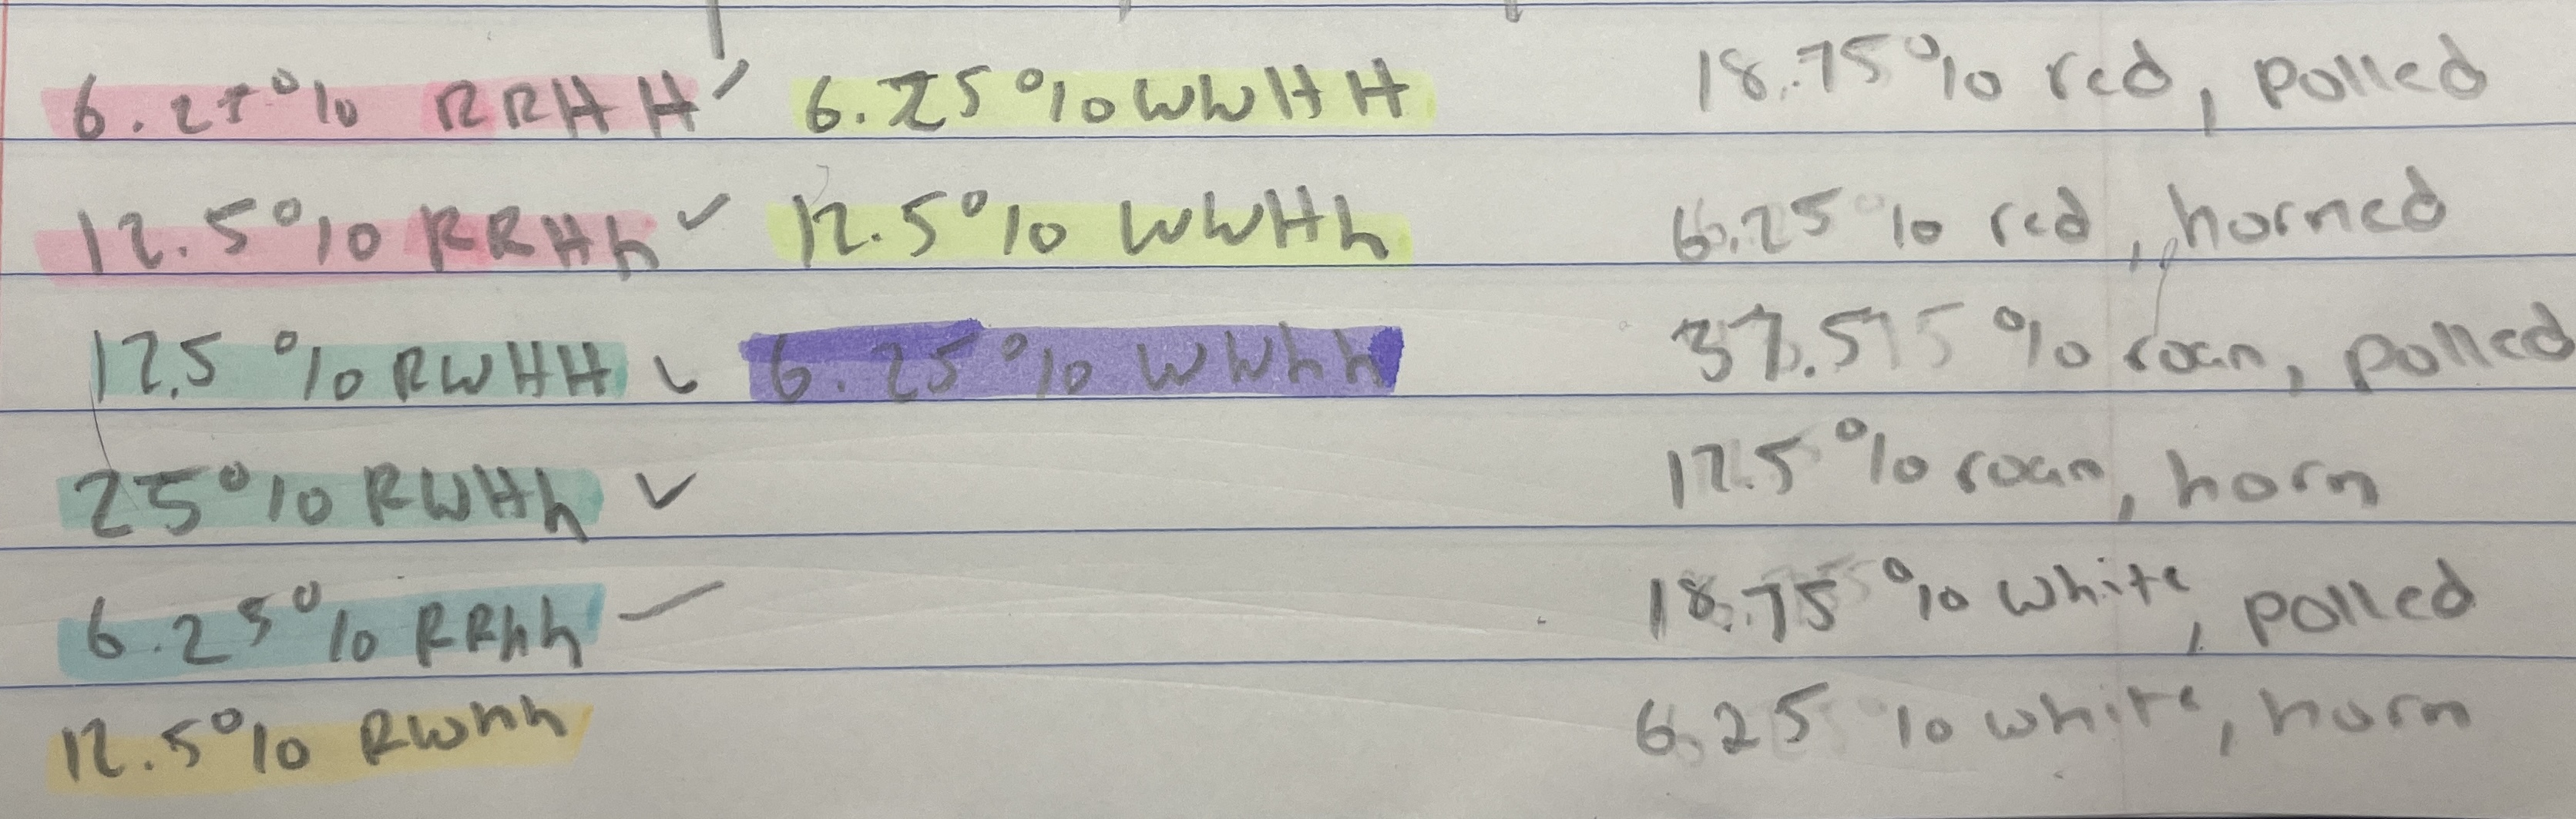 6.25% RRHH 6.25% WWHH 18.75% red, polled
12.5% RRHh 12.5% WWHh 6.25% red, horned
12.5% RWHH 6.25% WWhh 37.5% roan, polled
25% RWHh 12.5% roan, horn
6.25% RRhh 18.75% white, polled
12.5% RWhh 6.25% white, horn